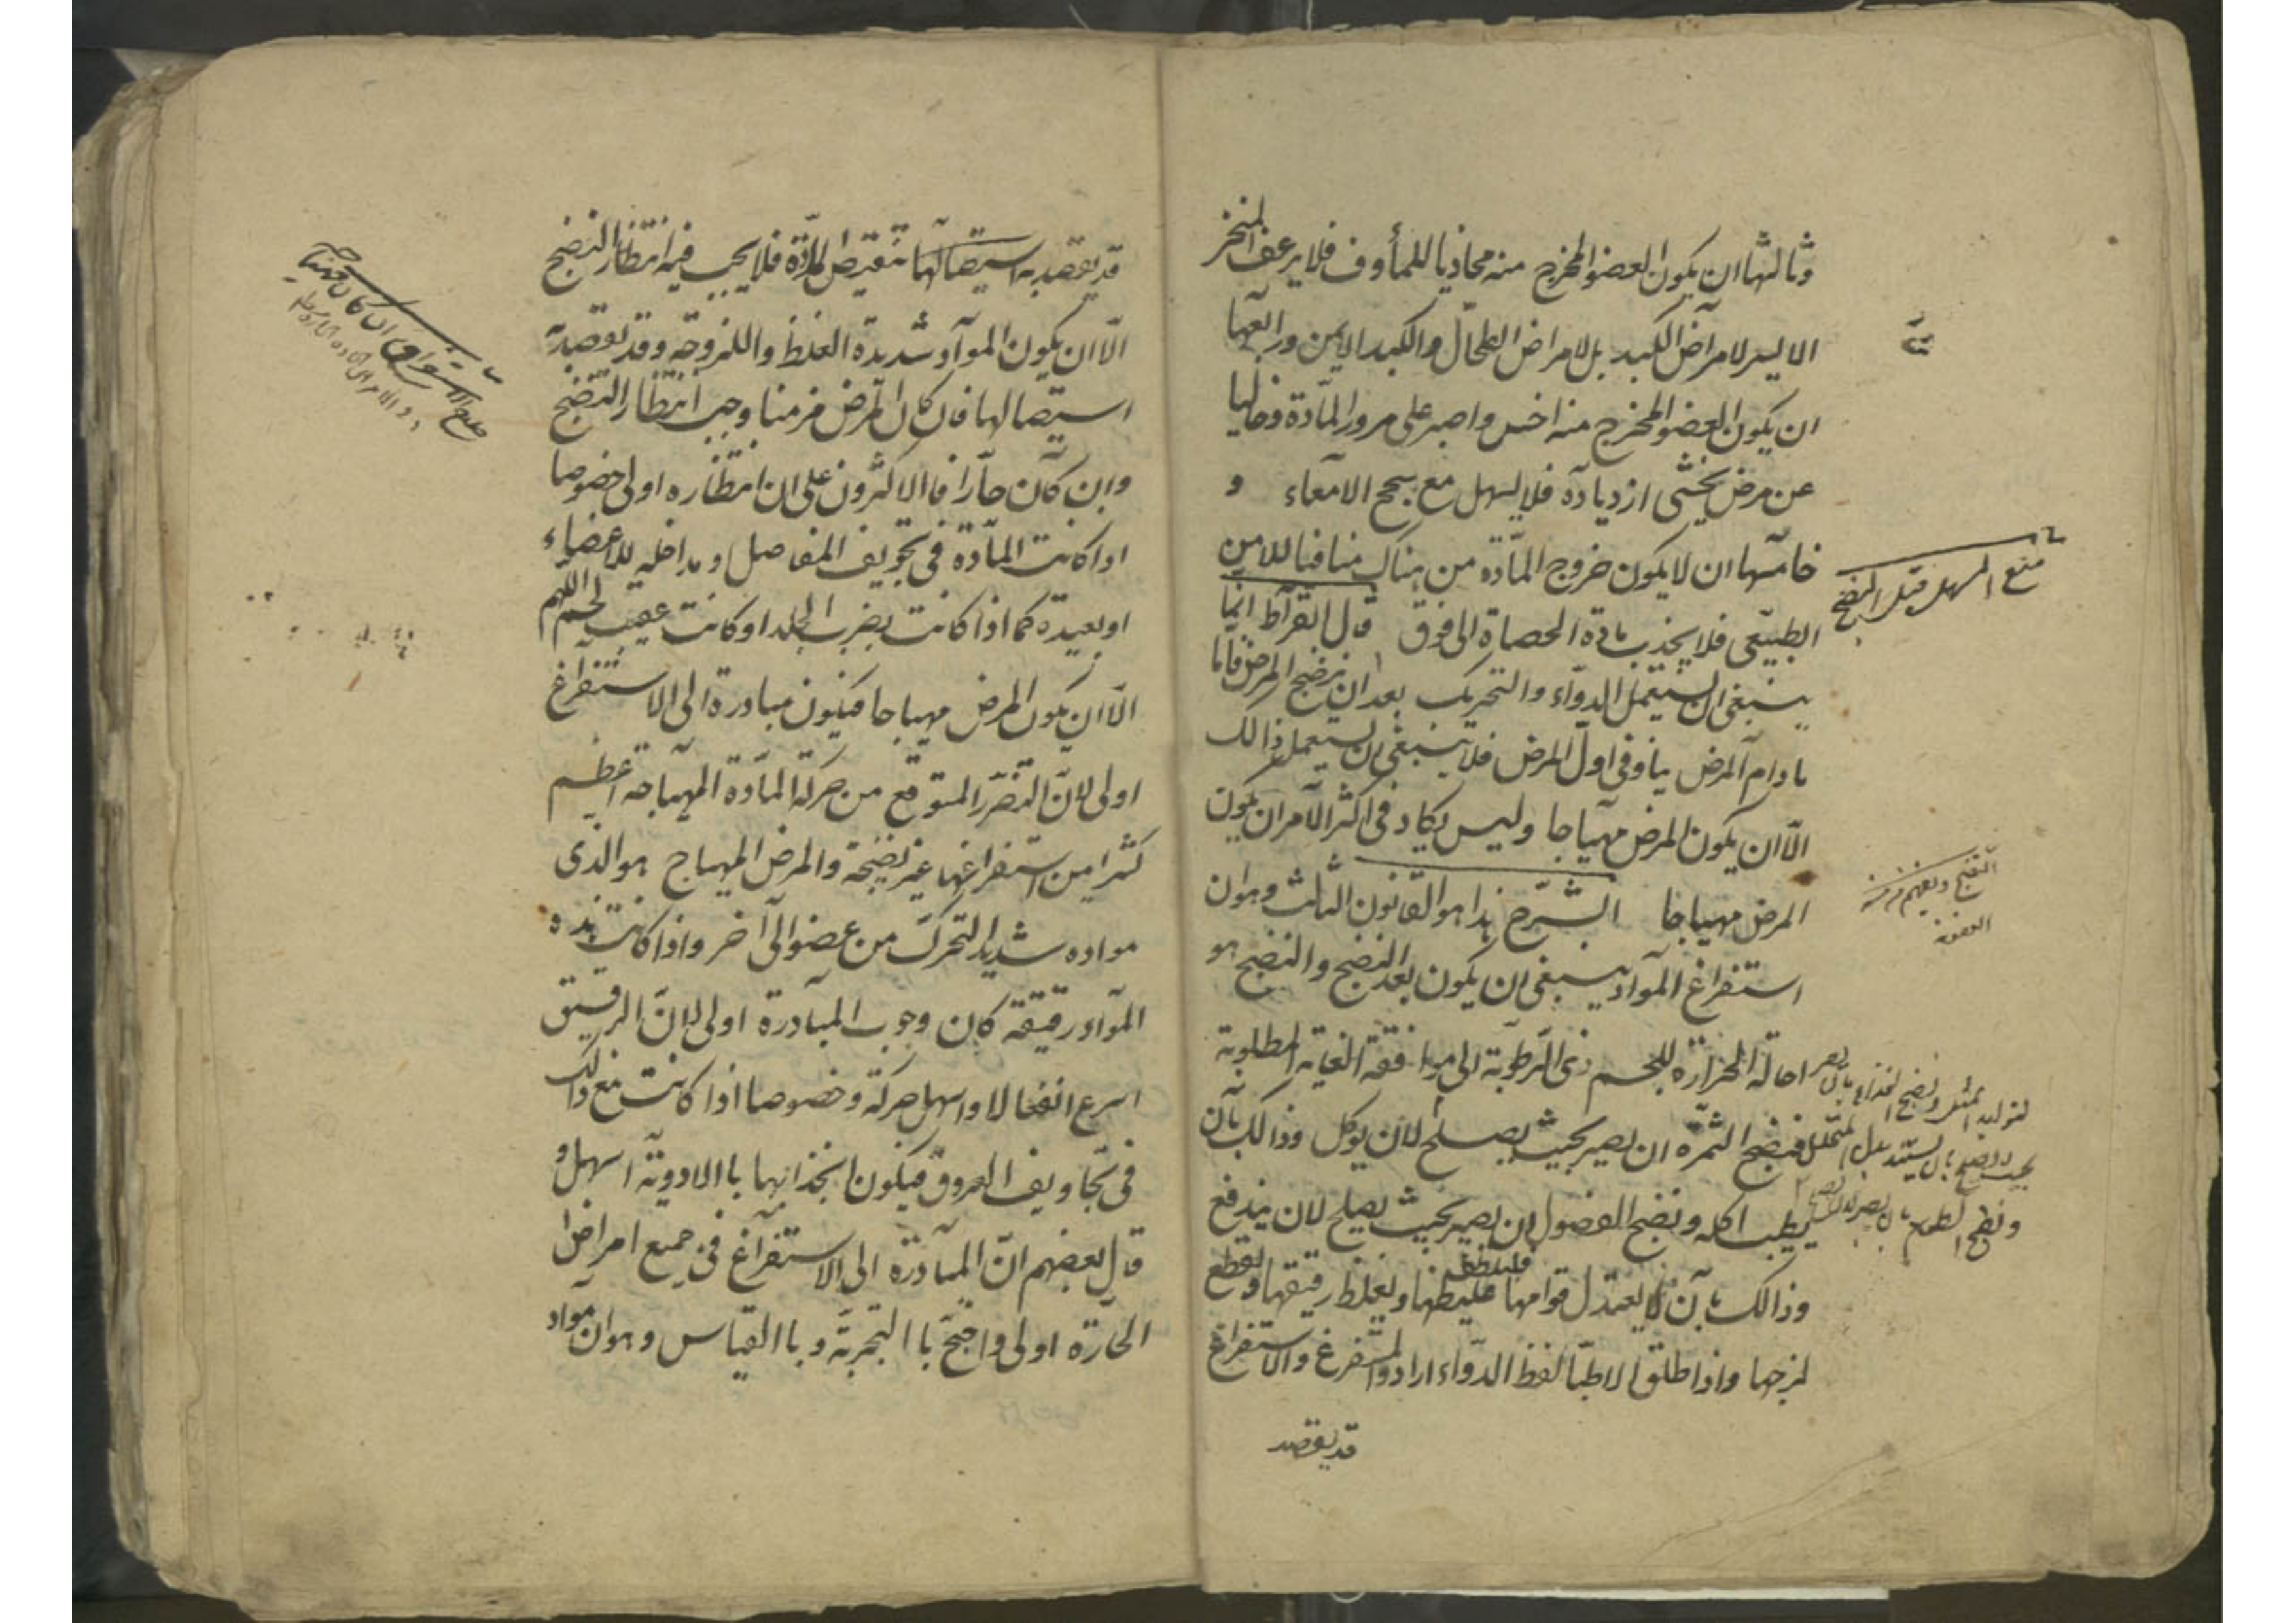 وثالثها ان يكون العضو المخرج منه محاذيا للمأوف فلا يرعف المنخر
الايسر لامراض الكبد بل لامراض الطحال والكبد الايمن ورابعها
ان يكون العضو المخرج منه اخس واصبر على مرور المادة وخاليا
عن مرض يخشى ازدياده فلا يسهل مع سحج الامعاء و
خامسها ان لا يكون خروج المادة من هناك منافيا للامن
منع المسهل قبل النضج
الطبيعى فلا يجذب مادة الحصاة الى فوق قال ابقراط انما
ينبغى ان يستعمل الدواء والتحريك بعد ان ينضج المرض فاما
مادام المرض نيا وفى اول المرض فلا ينبغى ان يستعمل ذالك
الا ان يكون المرض مهياجا وليس يكاد فى اكثر الامر ان يكون
المرض مهياجا الشرح هذا هو القانون الثالث وهو ان
استفراغ المواد ينبغى ان يكون بعد النضج والنضج هو
احالة الحرارة للجسم ذى الرطوبة الى موافقة الغاية المطلوبة
فنضج الثمرة ان يصير بحيث يصلح لان يوكل وذالك بان
يطيب اكله ونضج الفضول ان يصير بحيث يصلح لان يندفع
وذالك بان يعتدل قوامها غليظها ويغلظ رقيقها ويقطع
لزجها واذا اطلق الاطبا لفظ الدواء ارادوا المستفرغ والاستفراغ
قد يقصد
قد يقصد به استيصالها تنقيص المادة فلا يجب فيه انتظار النضج
الا ان يكون المواد شديدة الغلظ واللزوجة وقد يقصد به
استيصالها فان كان المرض مزمنا وجب انتظار النضج
وان كان حارا فالاكثرون على ان انتظاره اولى خصوصا
اذا كانت المادة فى تجويف المفاصل ومداخله للاعضاء
او بعيدة كما اذا كانت بقرب الجلد او كانت عقيب لحم
الا ان يكون المرض مهياجا فيكون مبادرة الى الاستفراغ
اولى لان التضرر المتوقع من حركة المادة المهياجة اعظم
كثيرا من استفراغها غير نضجة والمرض المهياج هو الذى
مواده شديد التحرك من عضو الى آخر واذا كانت هذه
المواد رقيقة كان وجوب المبادرة اولى لان الرقيق
اسرع انفعالا واسهل حركة وخصوصا اذا كانت مع ذالك
فى تجاويف العروق فيكون انجذابها باالادوية اسهل و
قال بعضهم ان المبادرة الى الاستفراغ فى جميع امراض
الحارة اولى واحتج باالتجربة وباالقياس وهو ان مواد